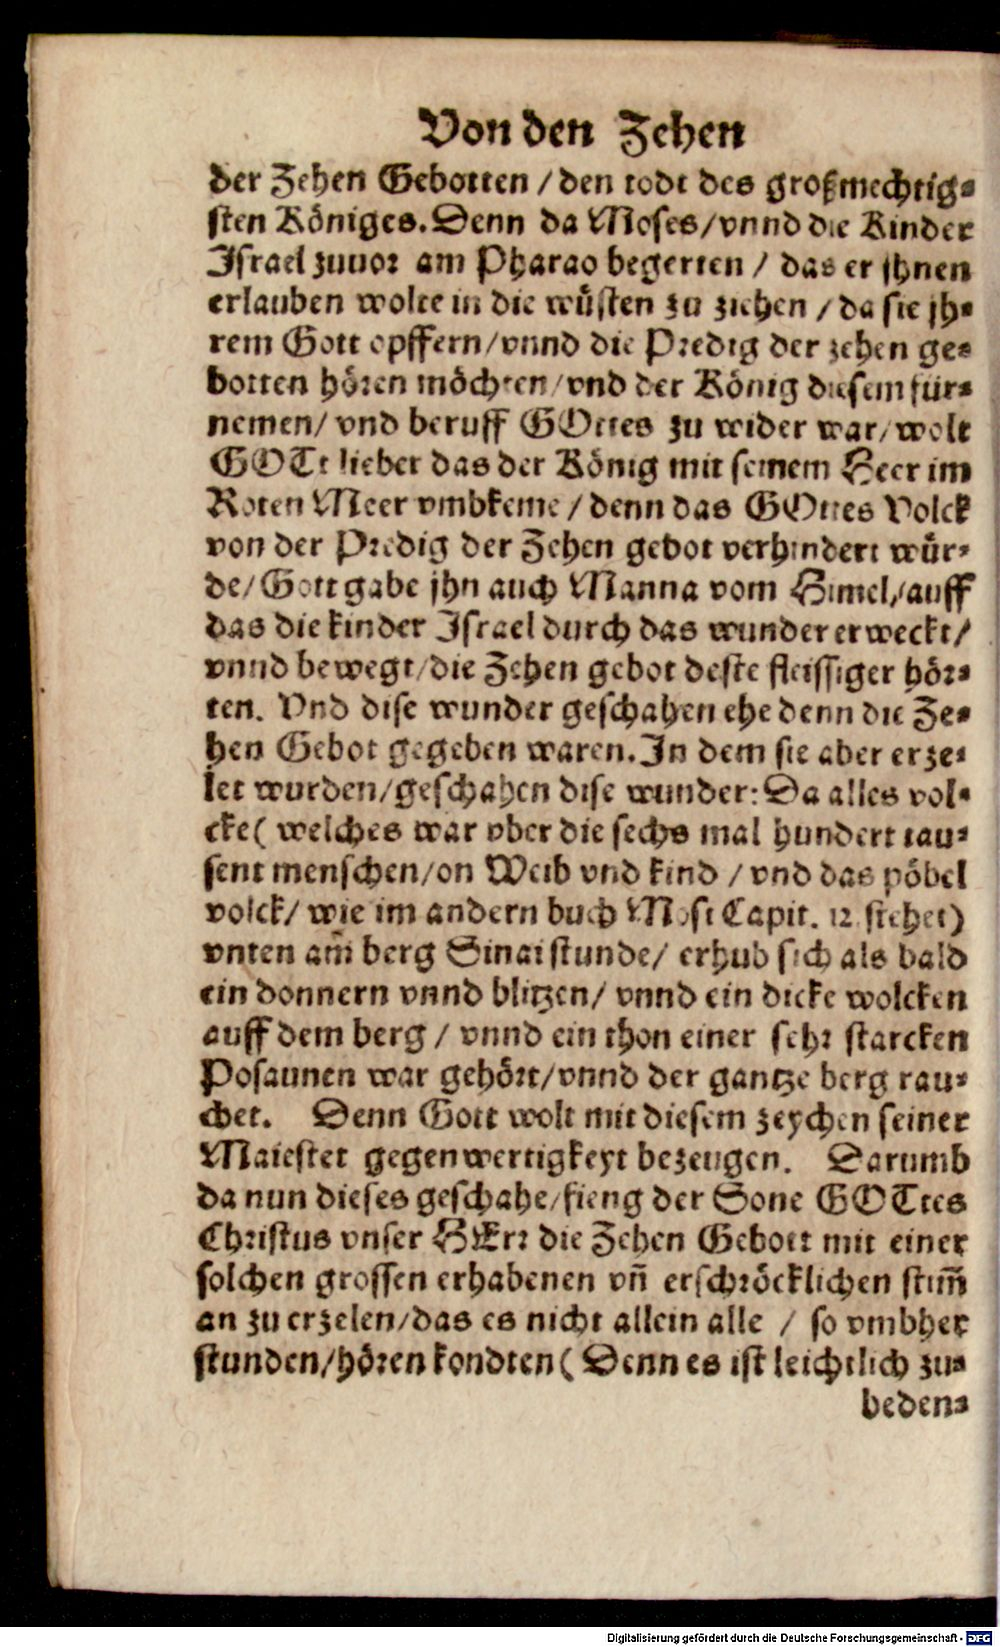 Von den Zehen
der Zehen Gebotten / den todt des großmechtig⸗
sten Königes. Denn da Moses / vnnd die Kinder
Israel zuuor am Pharao begerten / das er jhnen
erlauben wolte in die wüsten zu ziehen / da sie jh⸗
rem Gott opffern / vnnd die Predig der zehen ge⸗
botten hören möchten / vnd der König diesem für⸗
nemen / vnd beruff GOttes zu wider war / wolt
GOTt lieber das der König mit seinem Heer im
Roten Meer vmbkeme / denn das GOttes Volck
von der Predig der Zehen gebot verhindert wür⸗
de / Gott gabe jhn auch Manna vom Himel / auff
das die kinder Israel durch das wunder erweckt /
vnnd bewegt / die Zehen gebot deste fleissiger hör⸗
ten. Vnd dise wunder geschahen ehe denn die Ze⸗
hen Gebot gegeben waren. In dem sie aber erze⸗
let wurden / geschahen dise wunder: Da alles vol⸗
cke ( welches war vber die sechs mal hundert tau⸗
sent menschen / on Weib vnd kind / vnd das pöbel
volck / wie im andern buch Mosi Capit. 12. stehet)
vnten am̃ berg Sinai stunde / erhub sich als bald
ein donnern vnnd blitzen / vnnd ein dicke wolcken
auff dem berg / vnnd ein thon einer sehr starcken
Posaunen war gehört / vnnd der gantze berg rau⸗
chet. Denn Gott wolt mit diesem zeychen seiner
Maiestet gegenwertigkeyt bezeugen. Darumb
da nun dieses geschahe / fieng der Sone GOTtes
Christus vnser HErr die Zehen Gebott mit einer
solchen grossen erhabenen vñ erschröcklichen stim̃
an zu erzelen / das es nicht allein alle / so vmbher
stunden / hören kondten ( Denn es ist leichtlich zu⸗
beden⸗
Digitalisierung gefördert durch die Deutsche Forschungsgemeinschaft - DFG